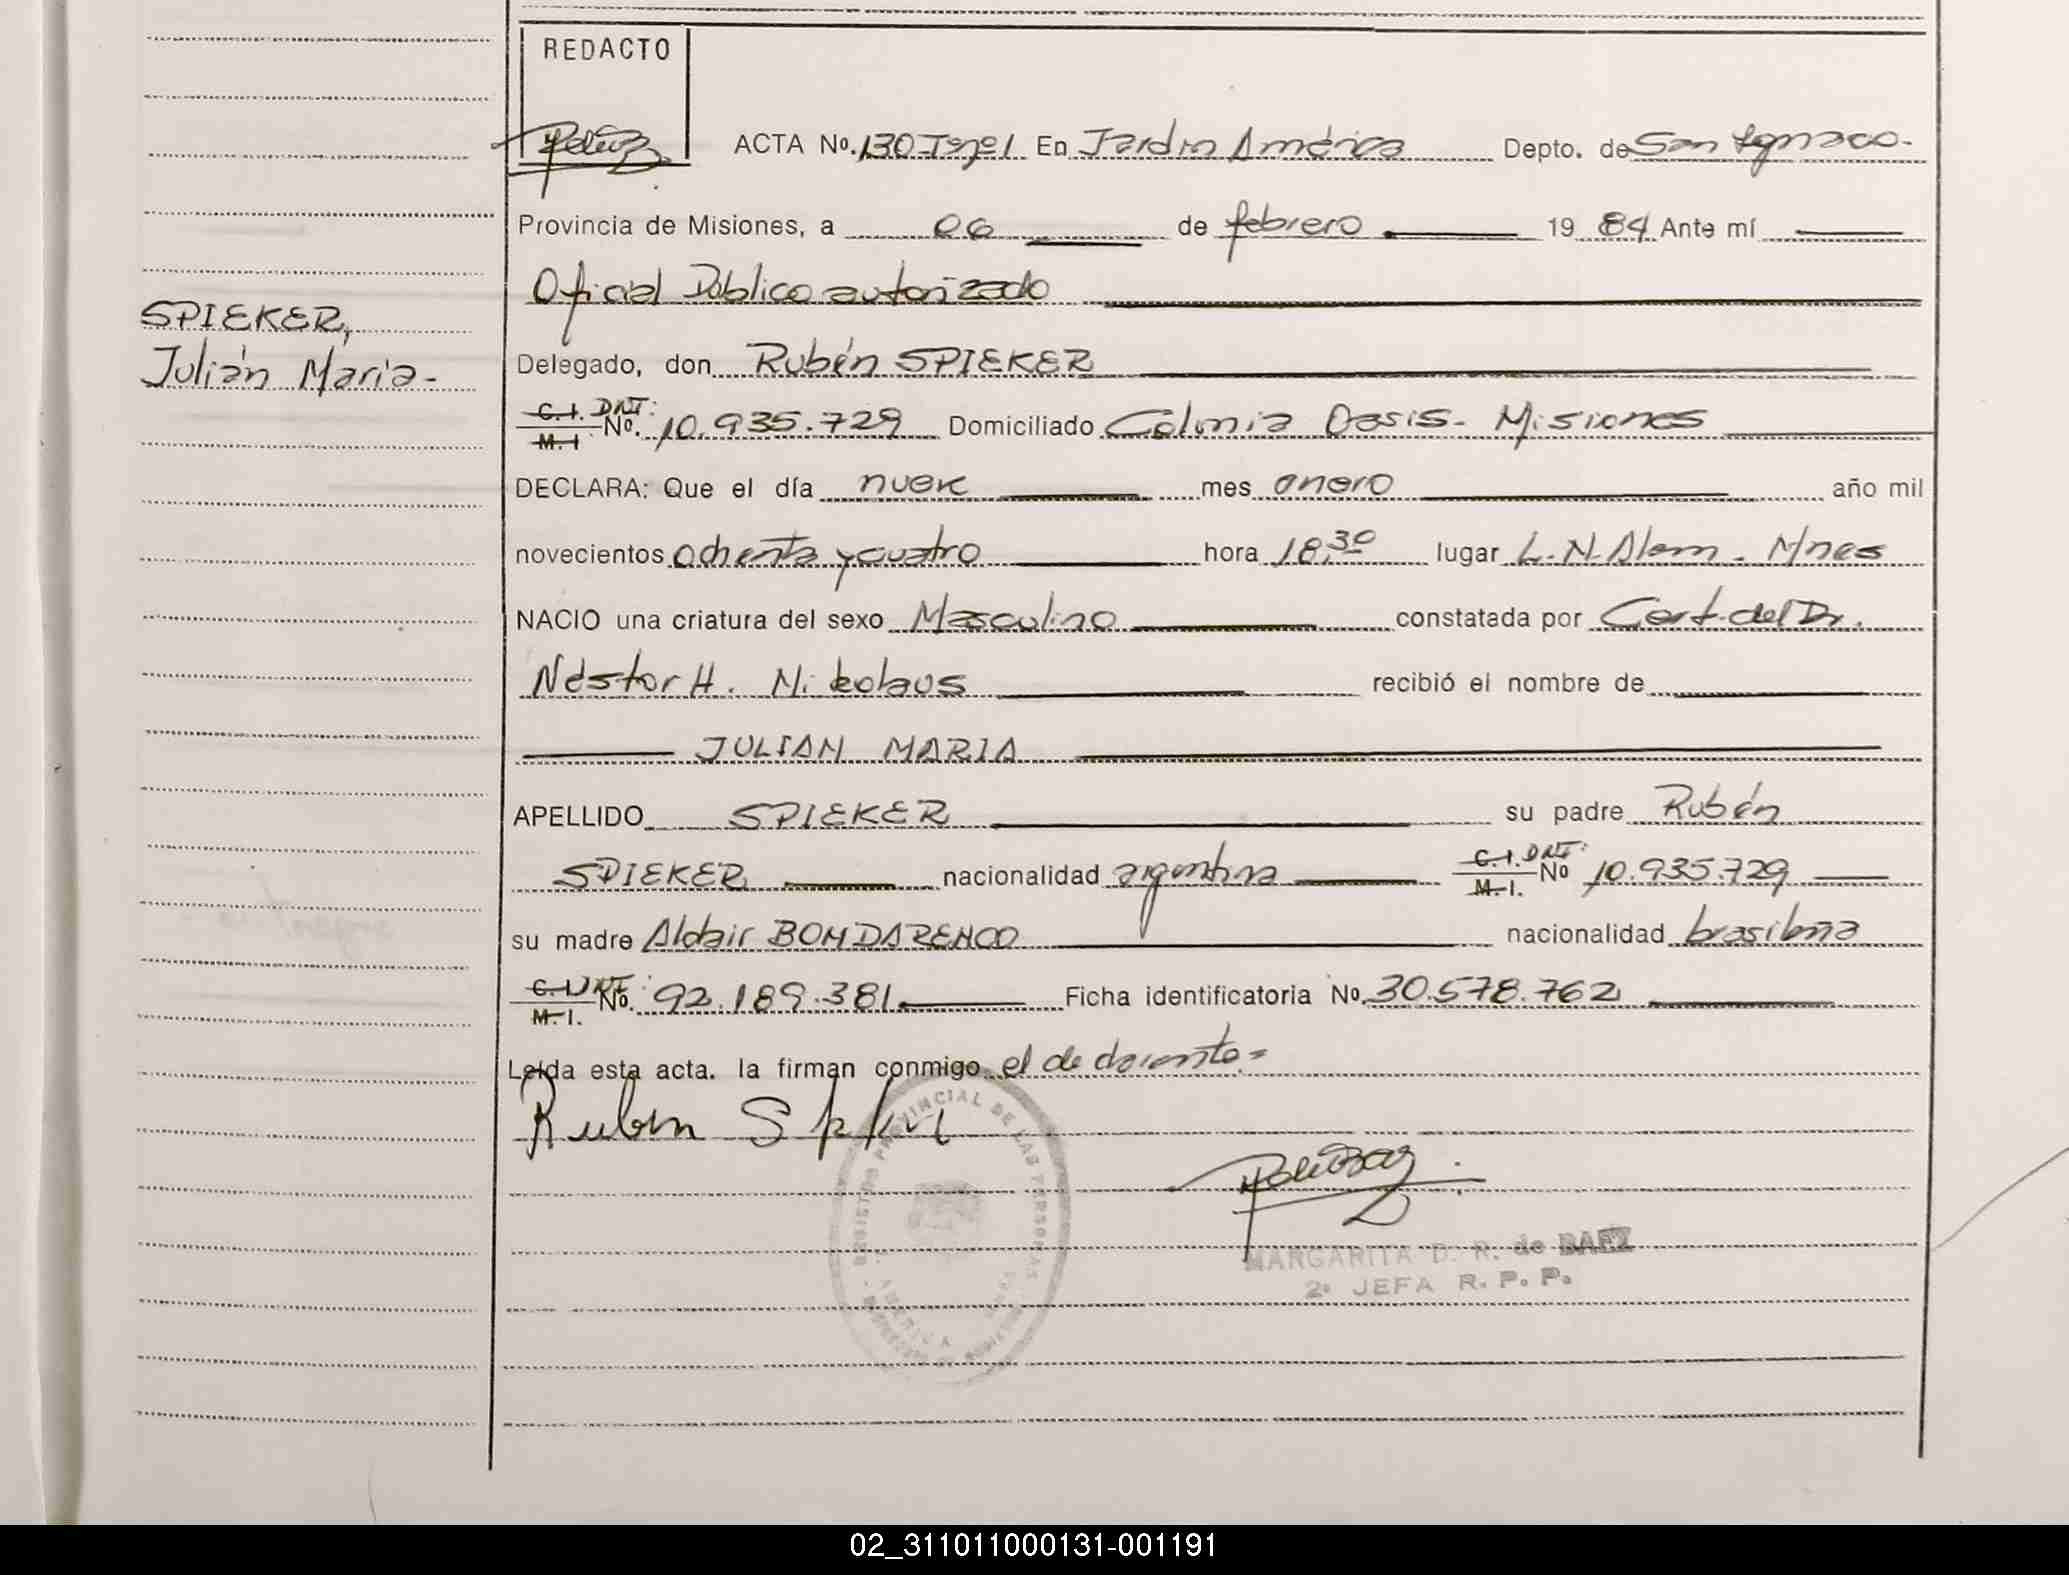 REDACTO
ACTA No. 130 Tº1 En Jardín América Depto. de San Ignacio.
Provincia de Misiones, a 06 de febrero 19 84 Ante mí
Oficial Público autorizado
SPIEKER,
Julián María-
Delegado, don Rubén SPIEKER
C.I. M.I. DNI: No. 10.935.729 Domiciliado Colonia Oasis- Misiones
DECLARA: Que el día nueve mes enero año mil
novecientos ochenta y cuatro hora 18,30 lugar L.N.Alem. Mnes
NACIO una criatura del sexo Masculino constatada por Cert. del Dr.
Néstor H. Nikolaus recibió el nombre de
JULIAN MARIA
APELLIDO SPIEKER su padre Rubén
SPIEKER nacionalidad argentina C.I. M.I. DNI: No 10.935.729
su madre Aldair BONDARENCO nacionalidad brasilera
C.I. M.I. DNI: No. 92.189.381 Ficha identificatoria No. 30.578.762
Leída esta acta. la firman conmigo el declarante=
Ruben
REGISTRO PROVINCIAL DE LAS PERSONAS
AMERICA
MARGARITA D. R. de BAEZ
2º JEFA R. P. P.
02_311011000131-001191